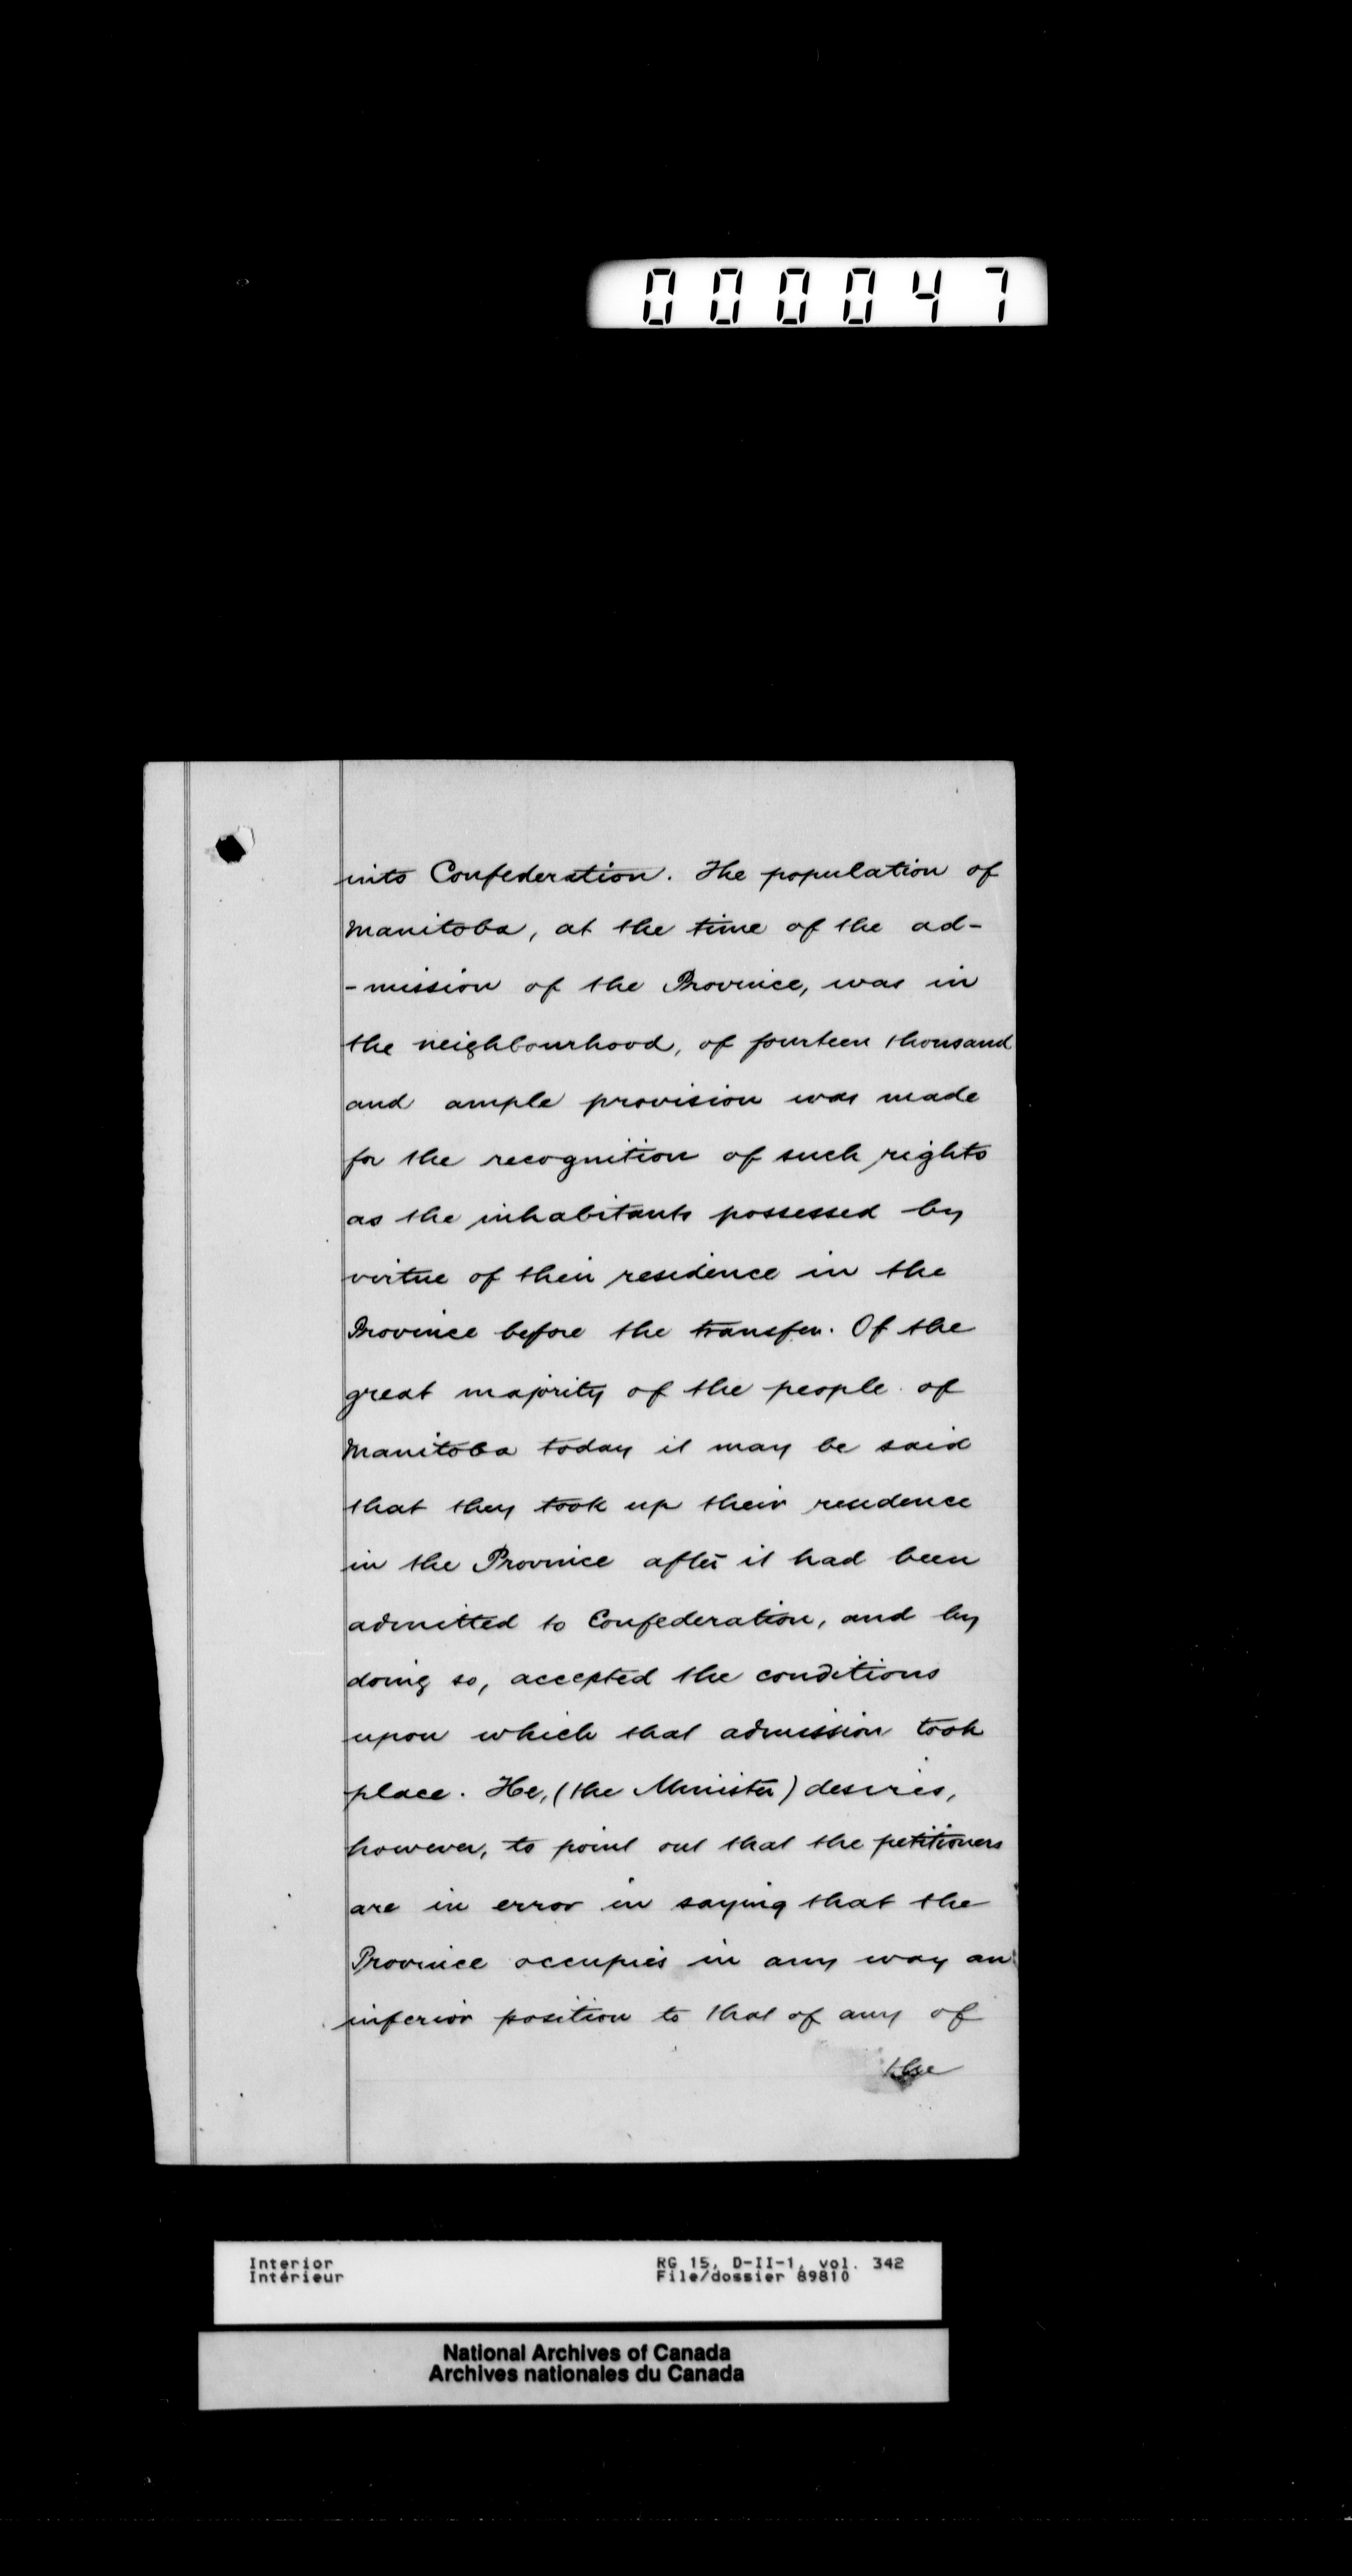 000047
into Confederation. The population of
Manitoba, at the time of the ad-
-mission of the Province, was in
the neighbourhood, of fourteen thousand
and ample provision was made
for the recognition of such rights
as the inhabitants possessed by
virtue of their residence in the
Province before the transfer. Of the
great majority of the people of
Manitoba today it may be said
that they took up their residence
in the Province after it had been
admitted to Confederation, and by
doing so, accepted the conditions
upon which that admission took
place. He, (the Minister) desires,
however, to point out that the petitioners
are in error in saying that the
Province occupies in any way an
inferior position to that of any of
the
Interior
Intérieur
RG 15, D-II-1, vol. 342
File/dossier 89810
National Archives of Canada
Archives nationales du Canada